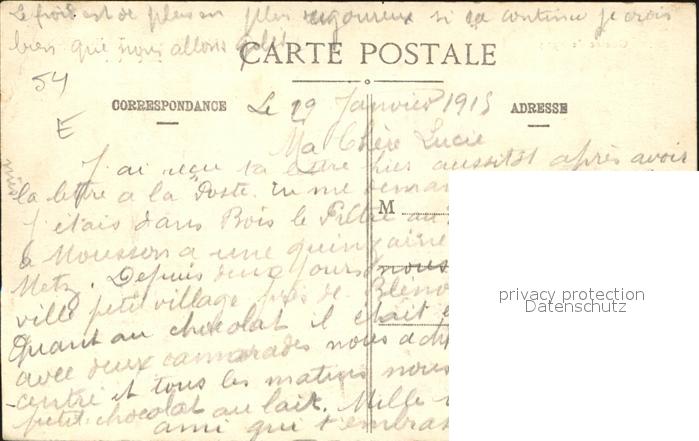 Le froid est de plus en plus rigoureux si ca continue je crois
bien que nous allons
CARTE POSTALE
54
CORRESPONDANCE Le 29 Janvier 1915 ADRESSE
E
Ma Chère Lucie
J'ai reçu ta lettre hier aussitôt après avoir
mis
la lettre a la Poste. Tu me deman
J'étais dans Bois le Prêtre au
M
à Mousson a une quinzaine
Metz. Depuis deux jours nous
ville petit village près de Bléno
Quant au chocolat il était
avec deux camarades nous
centré et tous les matins nous
petit chocolat au lait. Mille
ami qui t'embras
privacy protection
Datenschutz